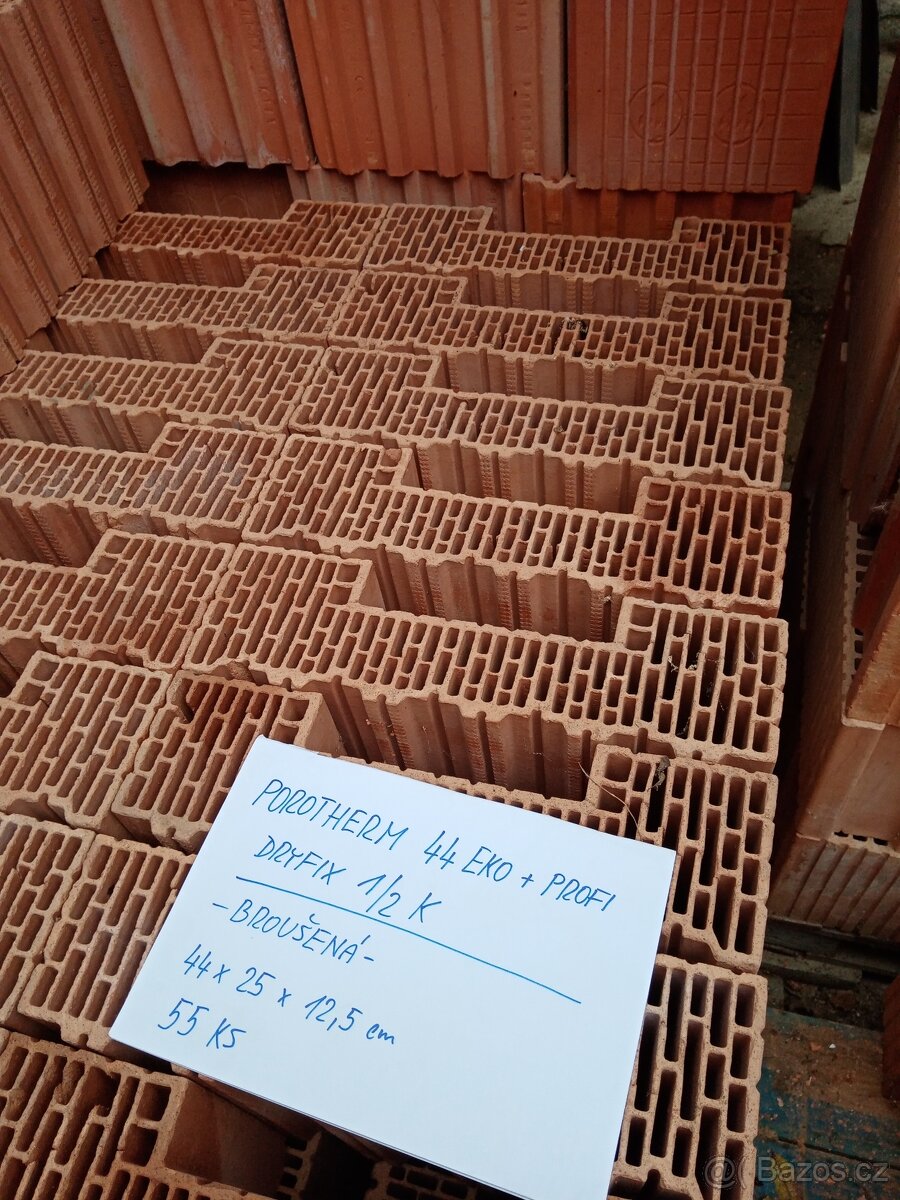 POROTHERM 44 EKO + PROFI
DRYFIX 1/2 K
- BROUŠENÁ -
44 x 25 x 12,5 cm
55 KS
@ Bazos.cz